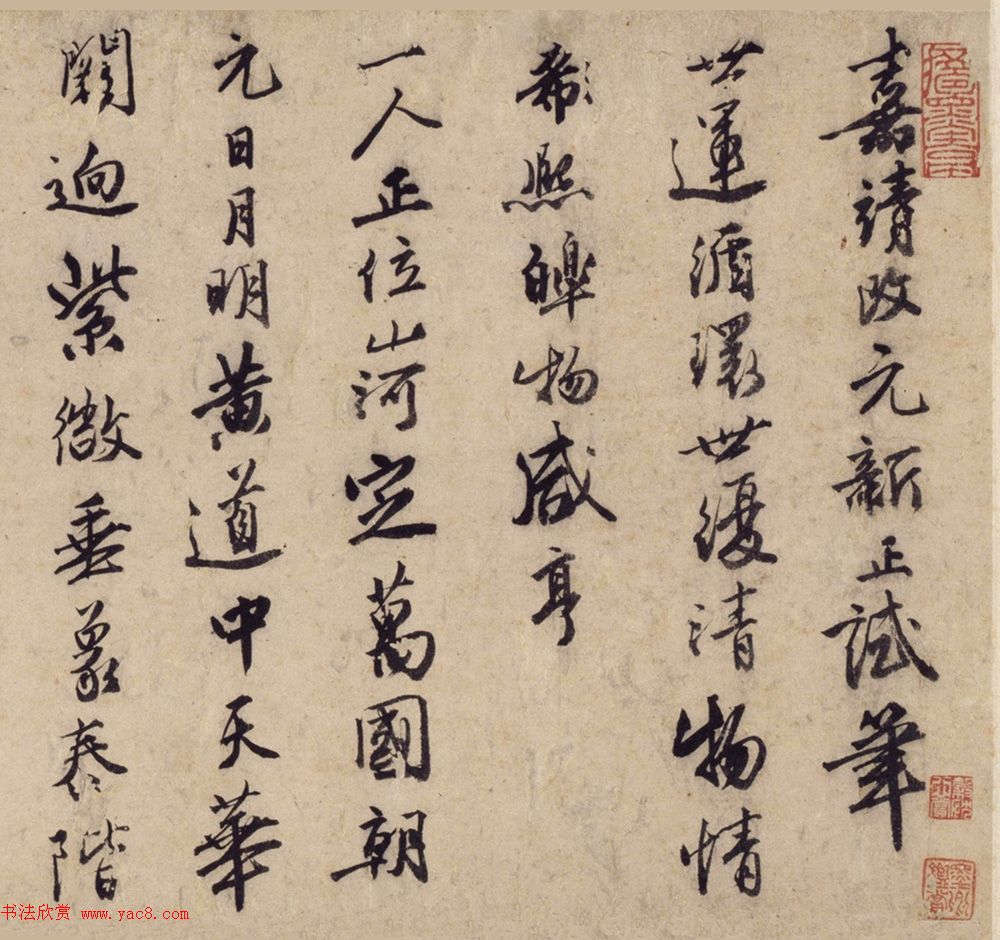 嘉靖改元新正試筆
世運循環世復清物情
熙皞物咸亨
一人正位山河定萬國朝
元日月明黃道中天華
闕迥紫微垂象泰階
书法欣赏 www.yac8.com